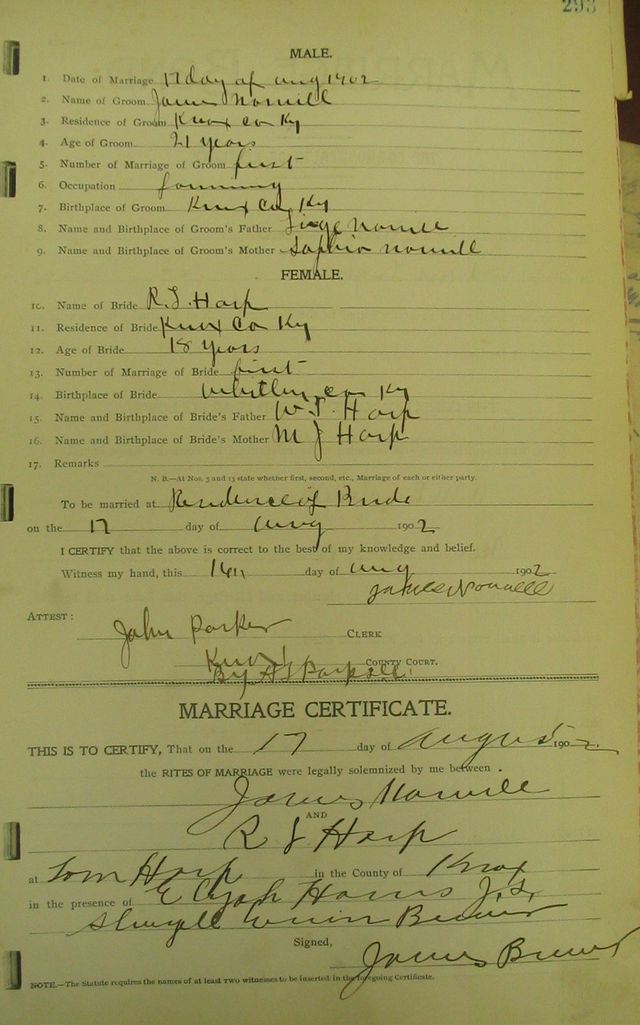 293
MALE.
1. Date of Marriage 17 day of aug 1902
2. Name of Groom James Norvill
3. Residence of Groom Knox co Ky
4. Age of Groom 21 years
5. Number of Marriage of Groom first
6. Occupation farming
7. Birthplace of Groom Knox Co Ky
8. Name and Birthplace of Groom's Father
9. Name and Birthplace of Groom's Mother Sophia
FEMALE.
10. Name of Bride R. J. Harp
11. Residence of Bride Knox Co Ky
12. Age of Bride 18 years
13. Number of Marriage of Bride first
14. Birthplace of Bride Whitley co Ky
15. Name and Birthplace of Bride's Father Harp
16. Name and Birthplace of Bride's Mother M J Harp
17. Remarks
N. B.—At Nos. 5 and 13 state whether first, second, etc., Marriage of each or either party.
To be married at Residence of Bride
on the 17 day of aug 1902
I CERTIFY that the above is correct to the best of my knowledge and belief.
Witness my hand, this day of aug 1902
James
ATTEST:
John Parker CLERK
Knox COUNTY COURT.
By
MARRIAGE CERTIFICATE.
THIS IS TO CERTIFY, That on the 17 day of August 1902
the RITES OF MARRIAGE were legally solemnized by me between
James
AND
R J Harp
at Tom Harp in the County of Knox
in the presence of
Signed,
James
NOTE.—The Statute requires the names of at least TWO witnesses to be inserted in the foregoing Certificate.